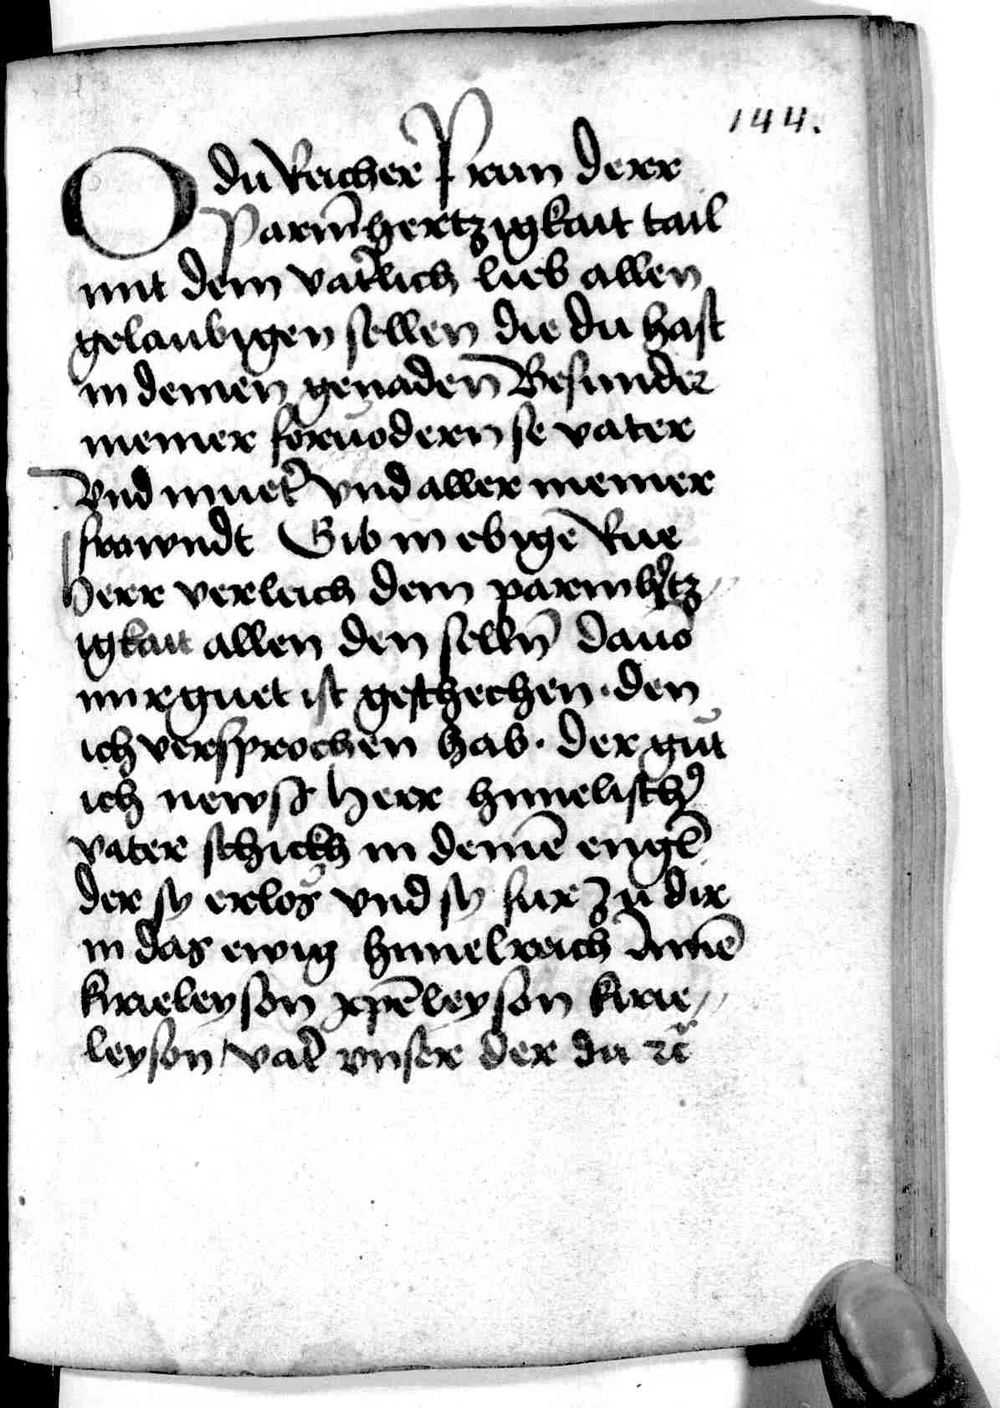 144.
O du Reicher Prun derr
Parmhertzigkait tail
mit dein vat̄lich lieb allen
gelaubigen sellen die du hast
in deinen genaden Besunder
meiner foruodern se vater
Vnd muet̄ vnd aller meiner
frawndt Gib in ebigē Rue
Herr verleich dein parmh̄tz
igkait allen den selln̄ dauō
mir guet ist geschechen · den
ich versprochen hab · der gůt
ich newsß Herr himelisch̄
vater schickh in deinē engl̄
der sy erlos vnd sy fur zu dir
in das ewig himelreich Amē
kirieleyson xp̄eleyson kirie
leyson / vat̄ vnser der du ꝛc̄